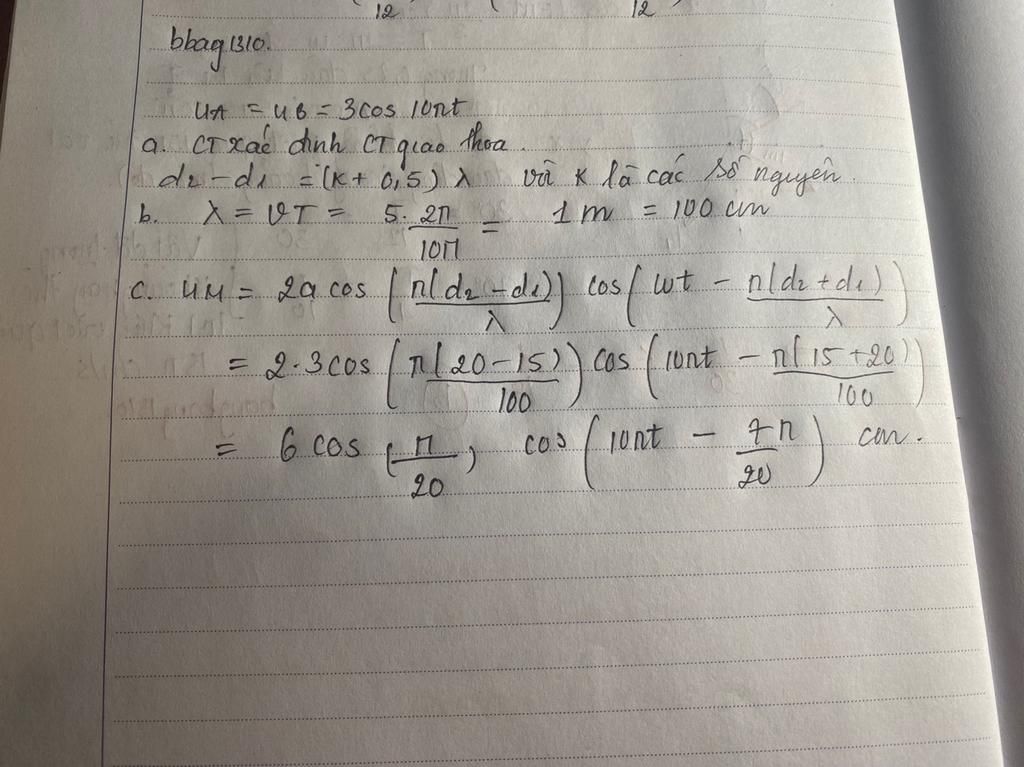 12 12
bbag 1310.
UA = UB = 3cos 10πt
a. CT xác định CT giao thoa.
d2 - d1 = (K + 0,5) λ với K là các số nguyên.
b. λ = vT = 5. 2π/10π = 1 m = 100 cm
c. UM = 2a cos (π(d2 - d1)/λ) cos (ωt - π(d2 + d1)/λ)
= 2.3cos (π(20 - 15)/100) cos (10πt - π(15 + 20)/100)
= 6 cos (π/20) cos (10πt - 7π/20) cm.